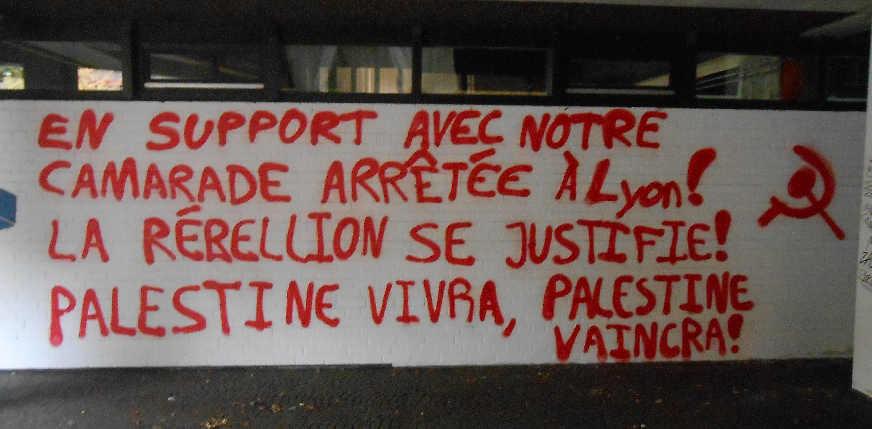 EN SUPPORT AVEC NOTRE
CAMARADE ARRÊTÉE À Lyon!
LA RÉBELLION SE JUSTIFIE!
PALESTINE VIVRA, PALESTINE
VAINCRA!